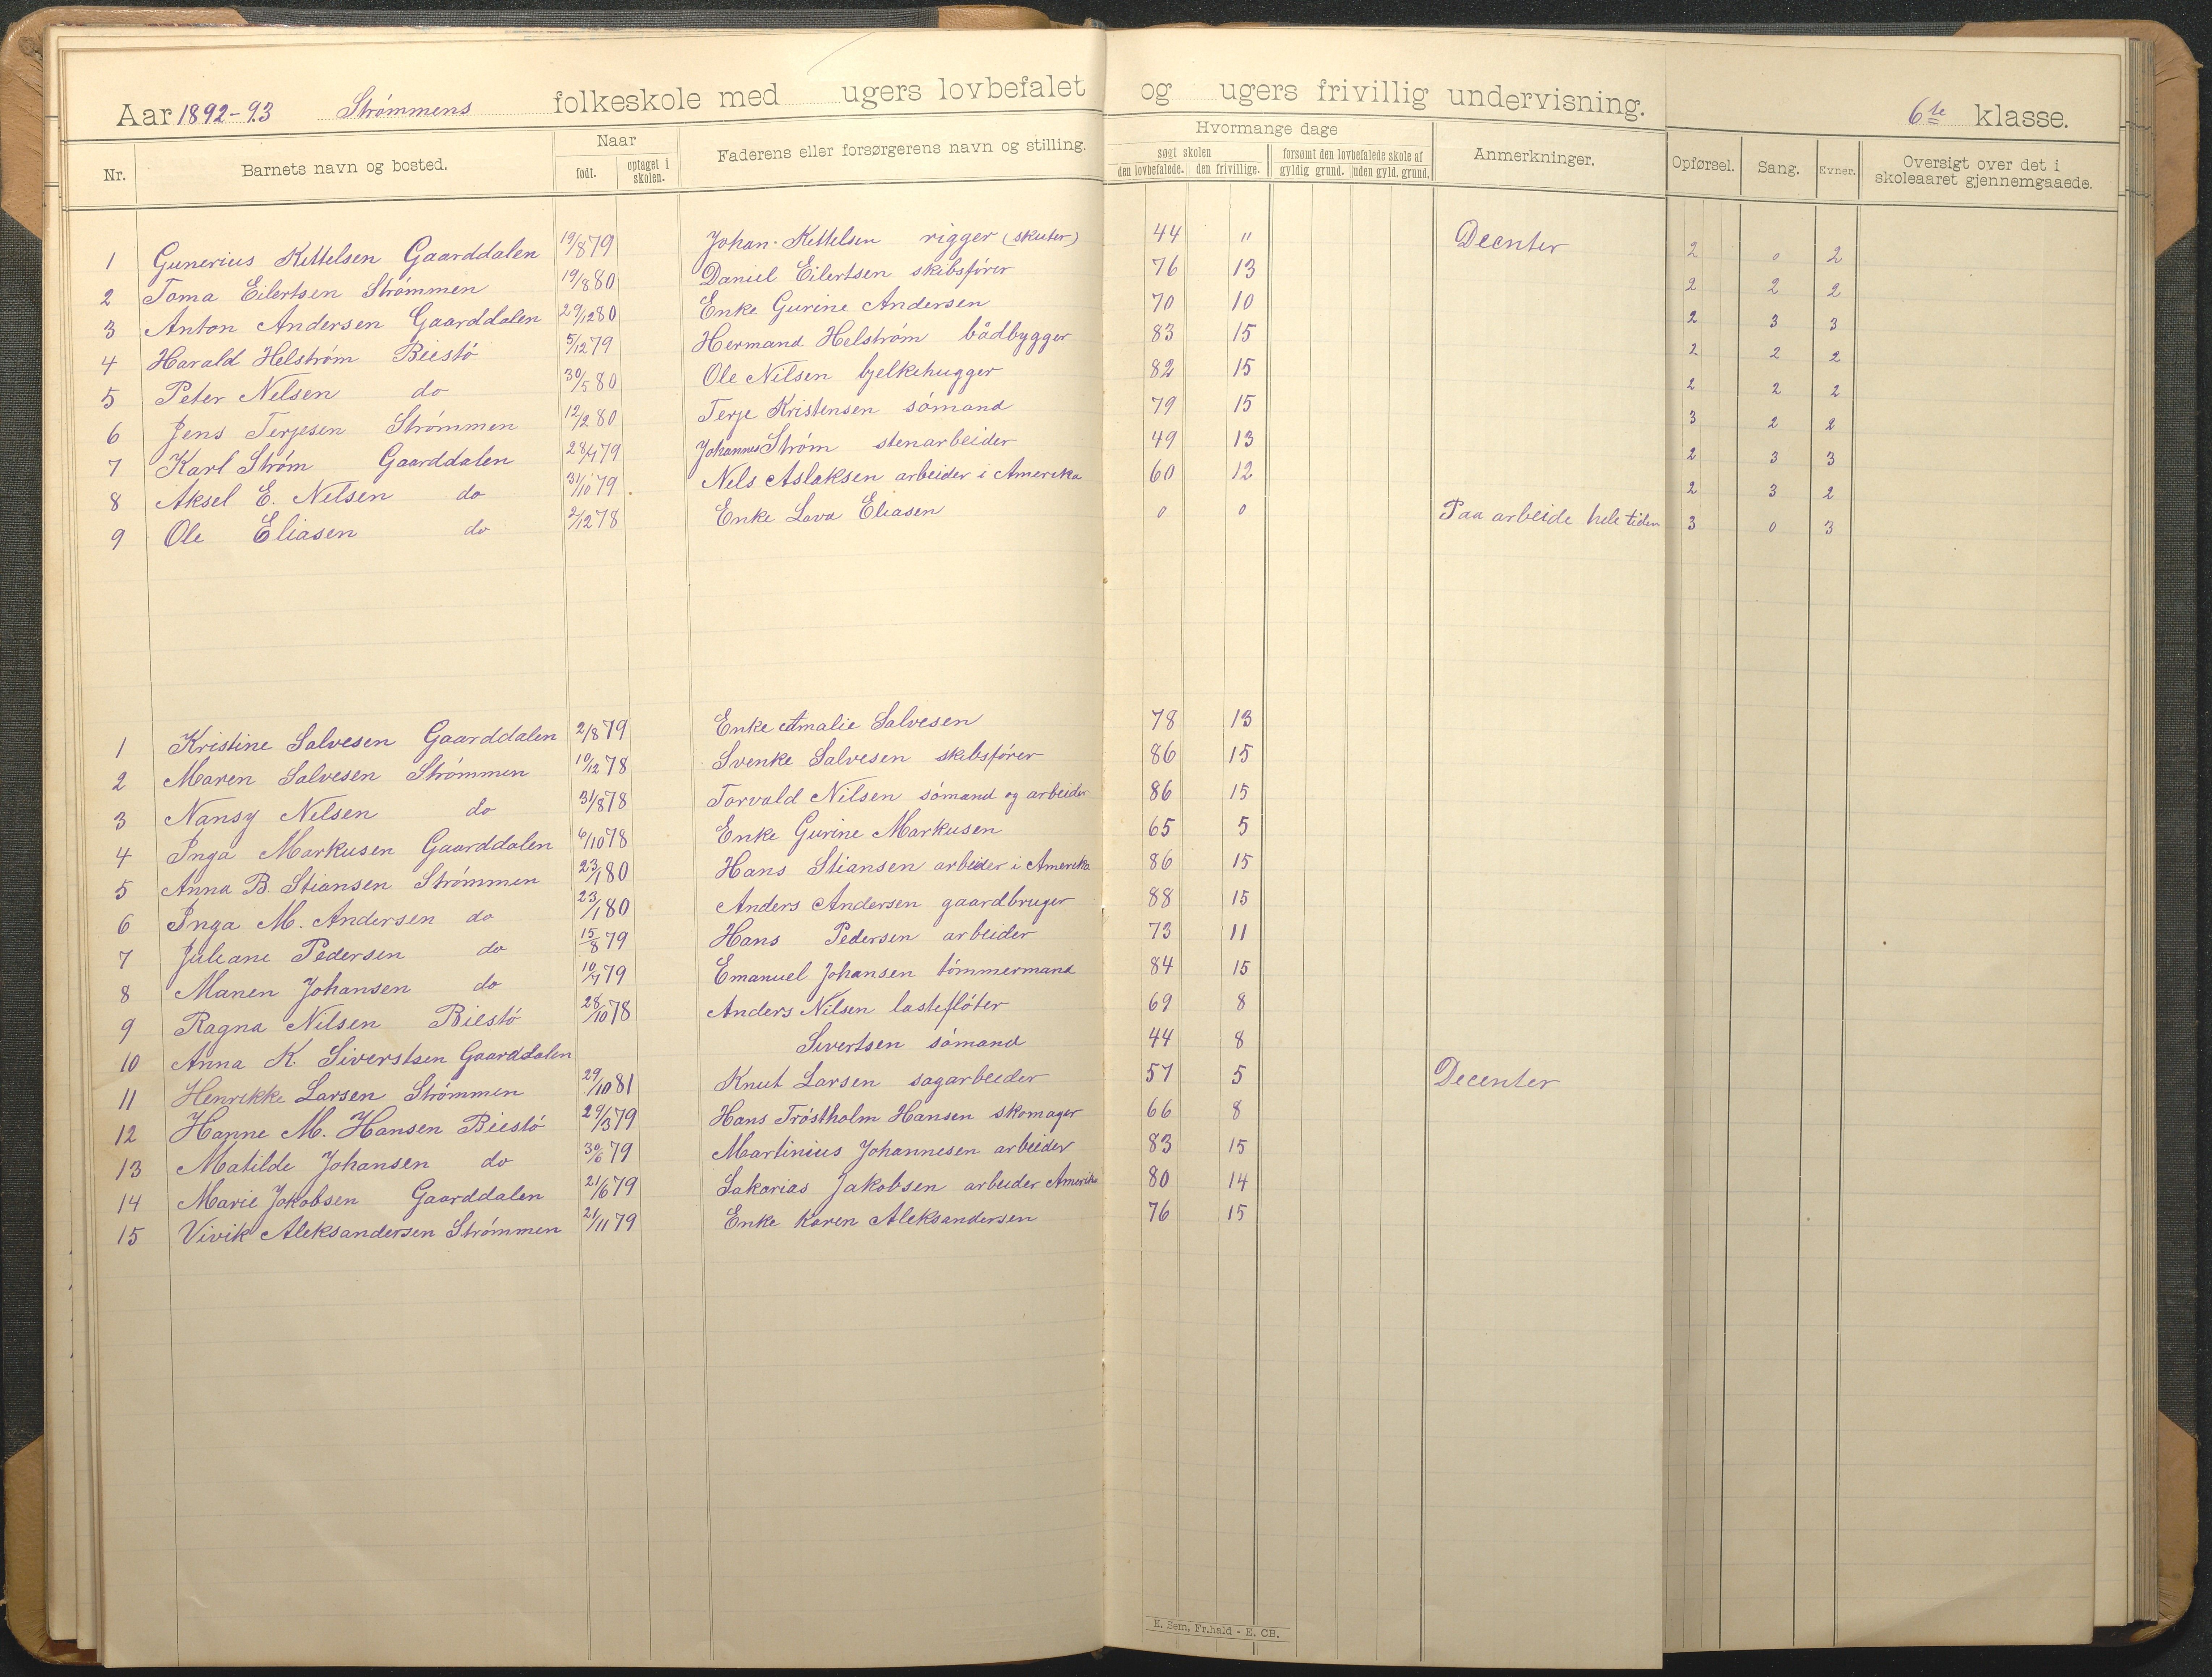 Aar 1892-93 Strømmens folkeskole med ugers lovbefalet og ugers frivillig undervisning. 6te klasse.
Nr. Barnets navn og bosted. Naar født. optaget i skolen. Faderens eller forsørgerens navn og stilling. Hvormange dage søgt skolen den lovbefalede. den frivillige. forsømt den lovbefalede skole af gyldig grund. uden gyld. grund. Anmerkninger. Opførsel. Sang. Evner. Oversigt over det i skoleaaret gjennemgaaede.
1 Gunerius Kittelsen Gaarddalen 19/8 79 Johan Kettelsen rigger (skuter) 44 " Decnter 2 0 2
2 Toma Eilertsen Strømmen 19/8 80 Daniel Eilertsen skibsfører 76 13 2 2 2
3 Anton Andersen Gaarddalen 29/12 80 Enke Gurine Andersen 70 10 2 3 3
4 Harald Helstrøm Biestø 5/12 79 Hermand Helstrøm bådbygger 83 15 2 2 2
5 Peter Nelsen do 30/5 80 Ole Nilsen bjelkehugger 82 15 2 2 2
6 Jens Terjesen Strømmen 12/2 80 Terje Kristensen sømand 79 15 3 2 2
7 Karl Strøm Gaarddalen 28/4 79 Johannes Strøm stenarbeider 49 13 2 3 3
8 Aksel E. Nelsen do 31/10 79 Nels Aslaksen arbeider i Amerika 60 12 2 3 2
9 Ole Eliasen do 2/12 78 Enke Lava Eliasen 0 0 Paa arbeide hele tiden 3 0 3
1 Kristine Salvesen Gaarddalen 2/8 79 Enke Amalie Salvesen 78 13
2 Maren Salvesen Strømmen 10/12 78 Svenke Salvesen skibsfører 86 15
3 Nansy Nelsen do 31/8 78 Torvald Nilsen sømand og arbeider 86 15
4 Inga Markusen Gaarddalen 6/10 78 Enke Gurine Markusen 65 5
5 Anna B. Stiansen Strømmen 23/1 80 Hans Stiansen arbeider i Amerika 86 15
6 Inga M. Andersen do 23/1 80 Anders Andersen gaardbruger 88 15
7 Juliane Pedersen do 15/8 79 Hans Pedersen arbeider 73 11
8 Manen Johansen do 10/7 79 Emanuel Johansen tømmermand 84 15
9 Ragna Nilsen Biestø 28/10 78 Anders Nilsen lastefløter 69 8
10 Anna K. Siverstsen Gaarddalen Sivertsen sømand 44 8
11 Henrikke Larsen Strømmen 29/10 81 Knut Larsen sagarbeider 57 5 Decenter
12 Hanne M. Hansen Biestø 29/3 79 Hans Trøstholm Hansen skomager 66 8
13 Matilde Johansen do 30/6 79 Martinius Johannesen arbeider 83 15
14 Marie Jakobsen Gaarddalen 21/6 79 Sakarias Jakobsen arbeider Amerika 80 14
15 Vivik Aleksandersen Strømmen 21/11 79 Enke Karen Aleksandersen 76 15
E. Sem, Fr.hald - E. CB.